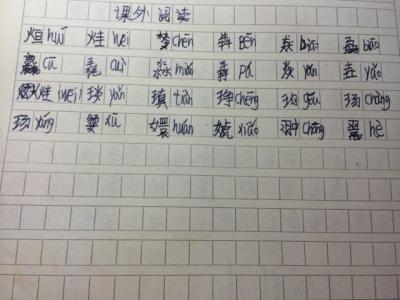 课外阅读
烜huī 烓wēi 棽chēn 犇bēn 猋biāo biāo
cū cuì 淼miǎo pá 焱yàn 垚yáo
烓(wēi) 琰yǎn 瑱tiàn 琤chēng 玽gǒu 玚chàng
玚yáng xū 嬛huán 婋xiāo 翀chōng 翯hè